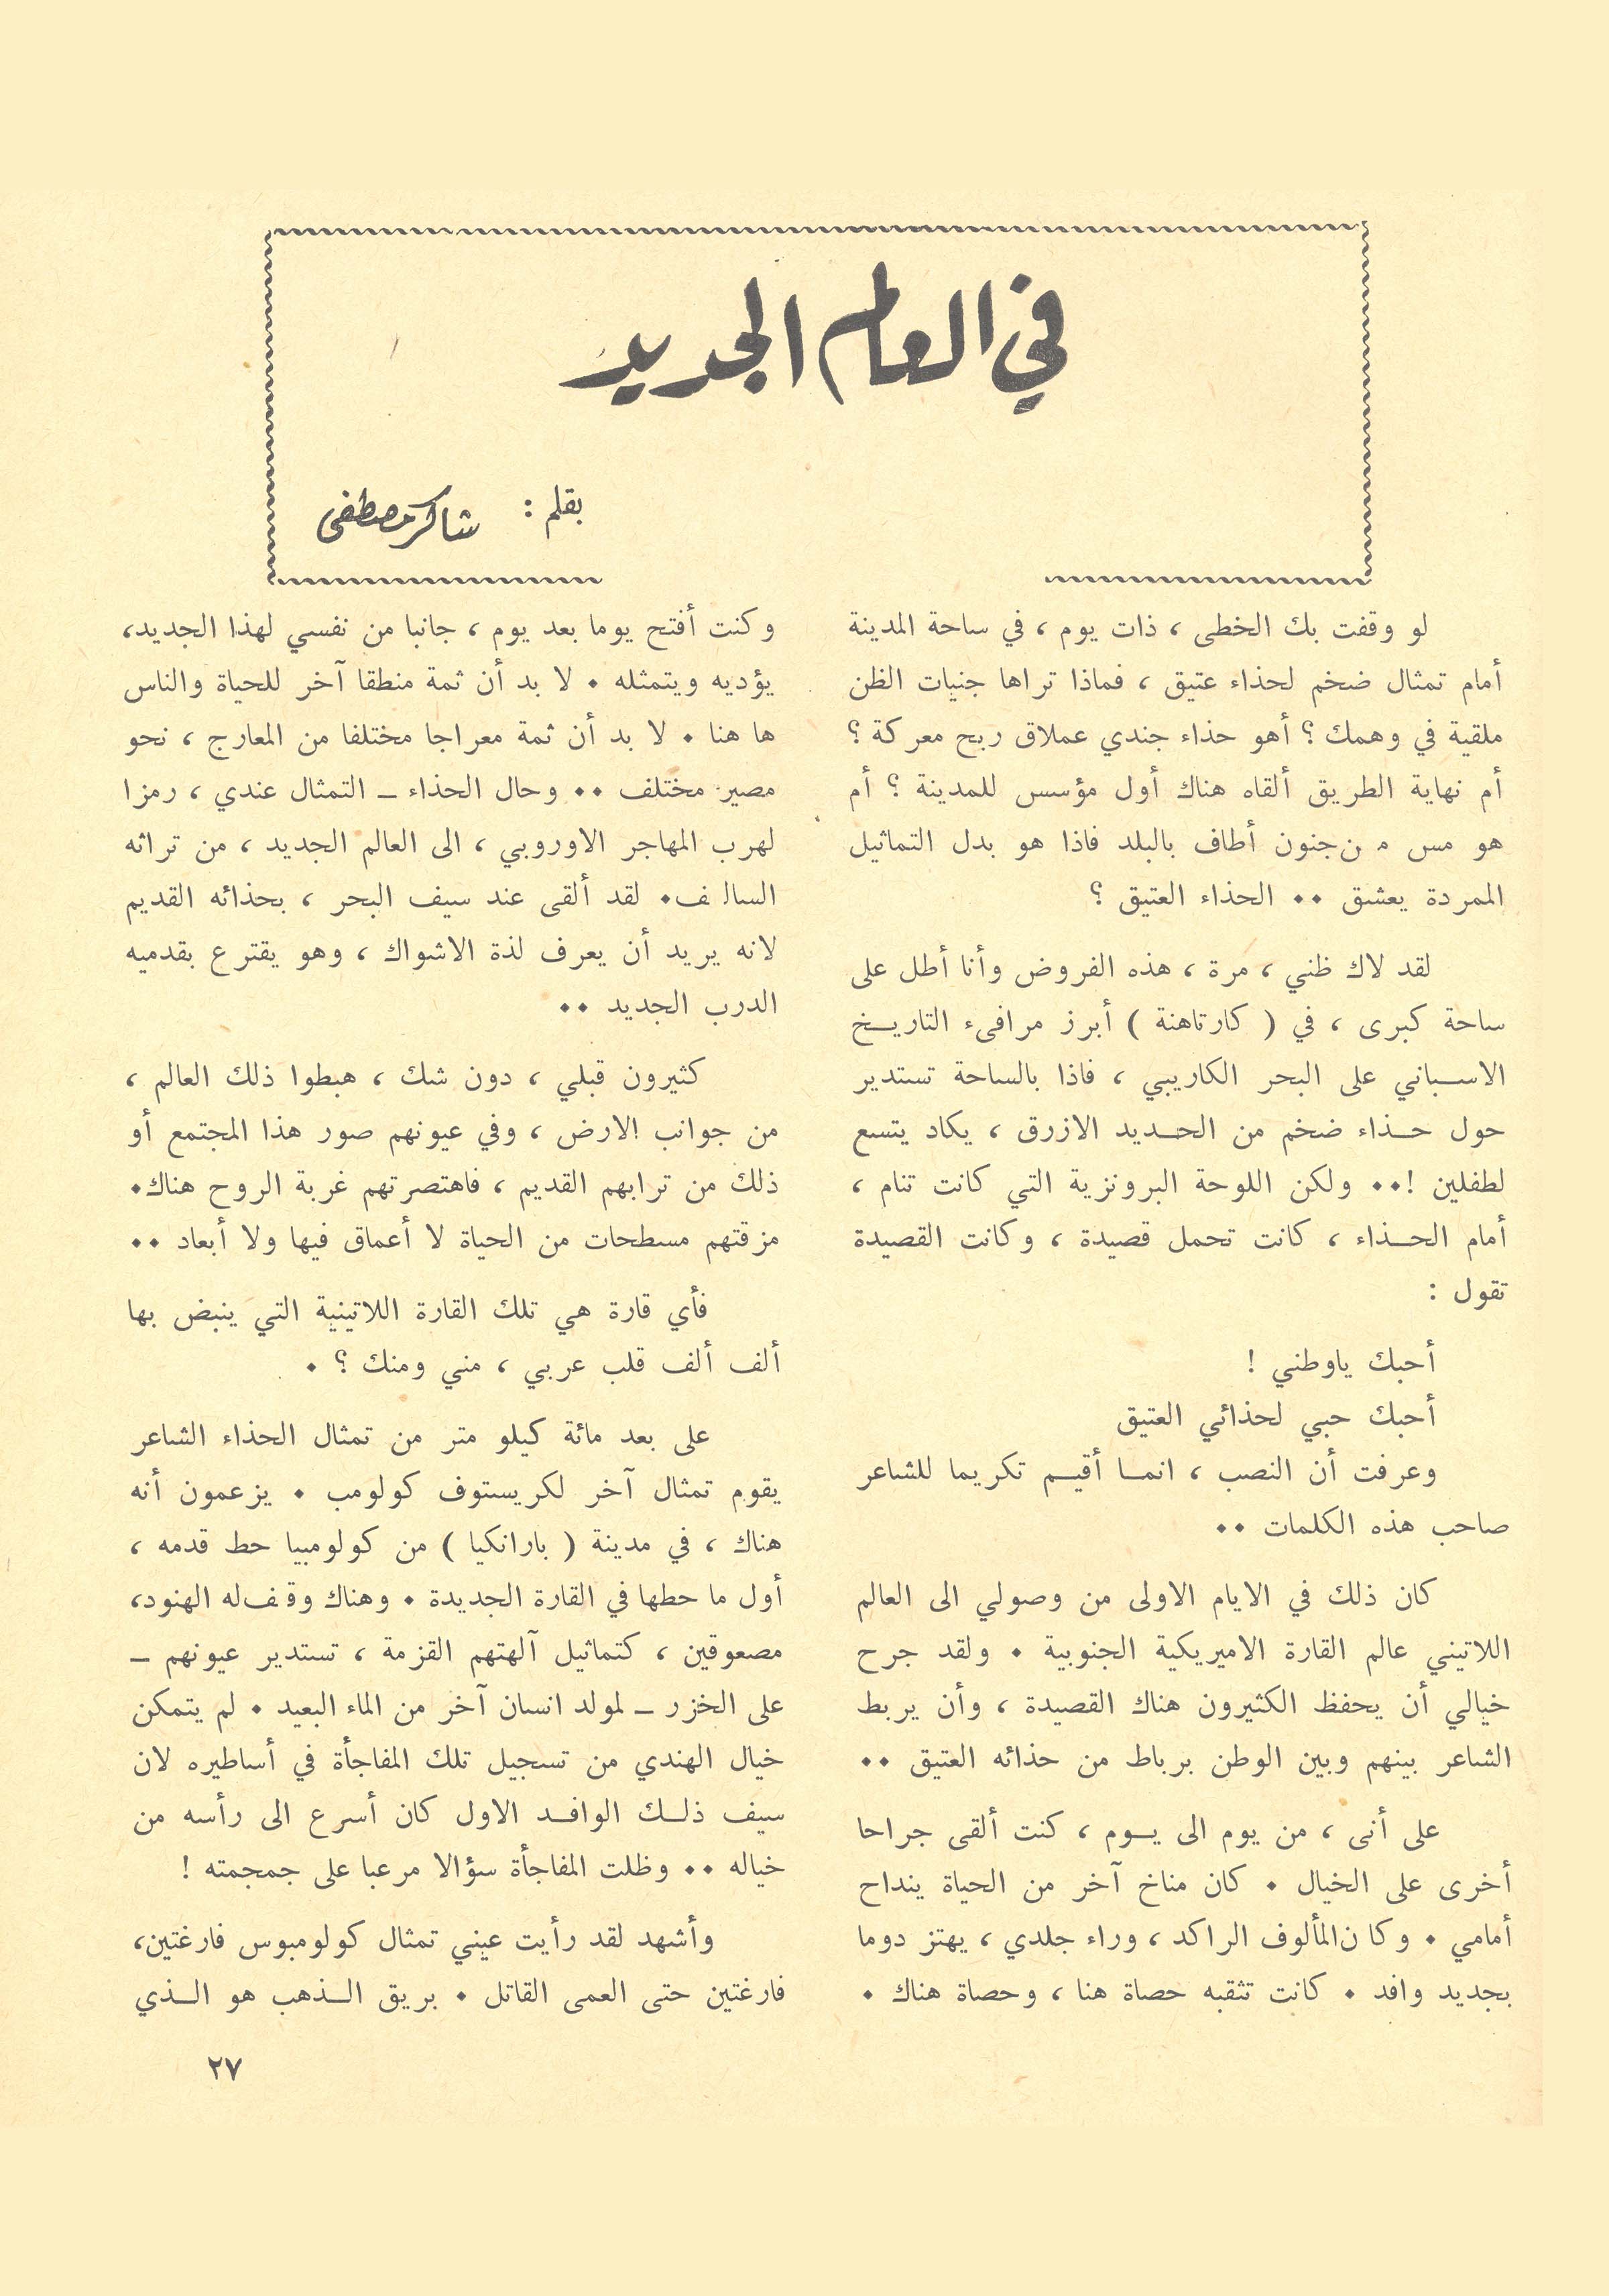 في العالم الجديد
بقلم : شاكر مصطفى
لو وقفت بك الخطى ، ذات يوم ، في ساحة المدينة
أمام تمثال ضخم لحذاء عتيق ، فماذا تراها جنيات الظن
ملقية في وهمك ؟ أهو حذاء جندي عملاق ربح معركة ؟
أم نهاية الطريق ألقاه هناك أول مؤسس للمدينة ؟ أم
هو مس من جنون أطاف بالبلد فاذا هو بدل التماثيل
الممردة يعشق .. الحذاء العتيق ؟
لقد لاك ظني ، مرة ، هذه الفروض وأنا أطل على
ساحة كبرى ، في ( كارتاهنة ) أبرز مرافىء التاريخ
الاسباني على البحر الكاريبي ، فاذا بالساحة تستدير
حول حذاء ضخم من الحديد الازرق ، يكاد يتسع
لطفلين !.. ولكن اللوحة البرونزية التي كانت تنام ،
أمام الحذاء ، كانت تحمل قصيدة ، وكانت القصيدة
تقول :
أحبك ياوطني !
أحبك حبي لحذائي العتيق
وعرفت أن النصب ، انما أقيم تكريما للشاعر
صاحب هذه الكلمات ..
كان ذلك في الايام الاولى من وصولي الى العالم
اللاتيني عالم القارة الاميريكية الجنوبية . ولقد جرح
خيالي أن يحفظ الكثيرون هناك القصيدة ، وأن يربط
الشاعر بينهم وبين الوطن برباط من حذائه العتيق ..
على أنى ، من يوم الى يوم ، كنت ألقى جراحا
أخرى على الخيال . كان مناخ آخر من الحياة ينداح
أمامي . وكان المألوف الراكد ، وراء جلدي ، يهتز دوما
بجديد وافد . كانت تثقبه حصاة هنا ، وحصاة هناك .
وكنت أفتح يوما بعد يوم ، جانبا من نفسي لهذا الجديد،
يؤديه ويتمثله . لا بد أن ثمة منطقا آخر للحياة والناس
ها هنا . لا بد أن ثمة معراجا مختلفا من المعارج ، نحو
مصير مختلف .. وحال الحذاء – التمثال عندي ، رمزا
لهرب المهاجر الاوروبي ، الى العالم الجديد ، من تراثه
السالف. لقد ألقى عند سيف البحر ، بحذائه القديم
لانه يريد أن يعرف لذة الاشواك ، وهو يقترع بقدميه
الدرب الجديد ..
كثيرون قبلي ، دون شك ، هبطوا ذلك العالم ،
من جوانب الارض ، وفي عيونهم صور هذا المجتمع أو
ذلك من ترابهم القديم ، فاهتصرتهم غربة الروح هناك.
مزقتهم مسطحات من الحياة لا أعماق فيها ولا أبعاد ..
فأي قارة هي تلك القارة اللاتينية التي ينبض بها
ألف ألف قلب عربي ، مني ومنك ؟ .
على بعد مائة كيلو متر من تمثال الحذاء الشاعر
يقوم تمثال آخر لكريستوف كولومب . يزعمون أنه
هناك ، في مدينة ( بارانكيا ) من كولومبيا حط قدمه ،
أول ما حطها في القارة الجديدة . وهناك وقف له الهنود،
مصعوقين ، كتماثيل آلهتهم القزمة ، تستدير عيونهم –
على الخزر – لمولد انسان آخر من الماء البعيد . لم يتمكن
خيال الهندي من تسجيل تلك المفاجأة في أساطيره لان
سيف ذلك الوافد الاول كان أسرع الى رأسه من
خياله .. وظلت المفاجأة سؤالا مرعبا على جمجمته !
وأشهد لقد رأيت عيني تمثال كولومبوس فارغتين،
فارغتين حتى العمى القاتل . بريق الذهب هو الذي
٢٧